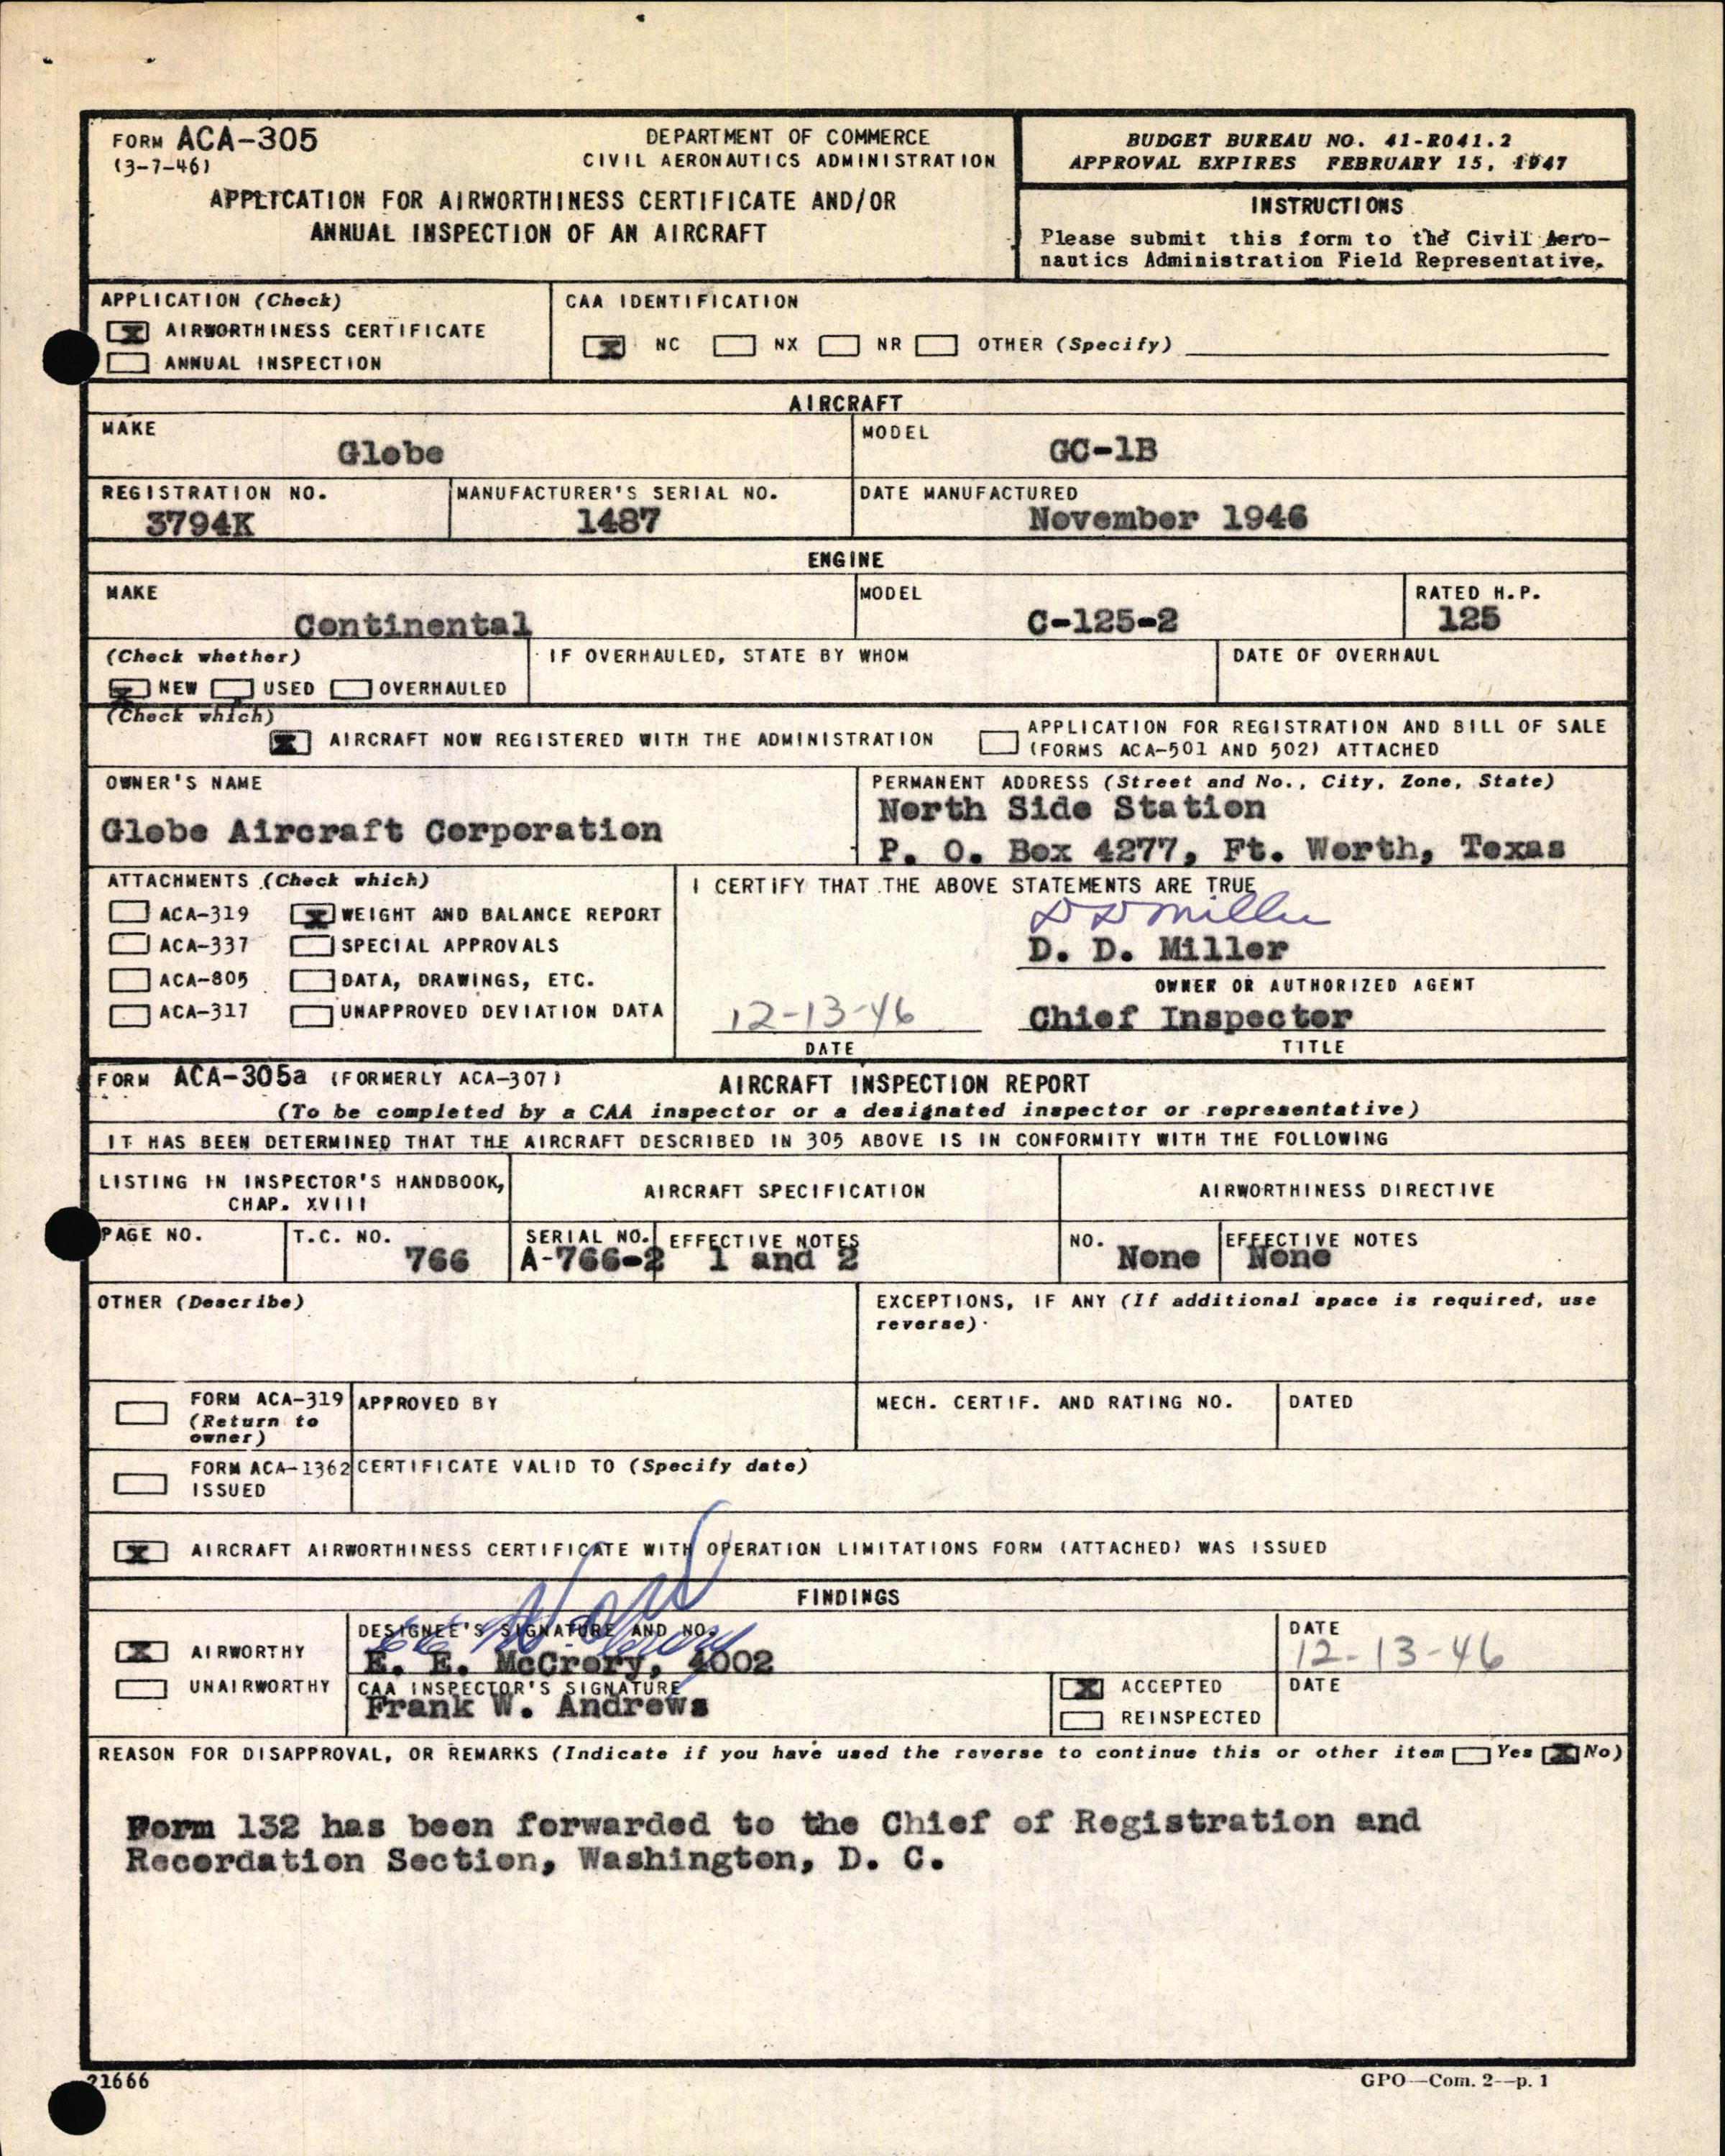 FORM ACA-305
(3-7-46)
DEPARTMENT OF COMMERCE
CIVIL AERONAUTICS ADMINISTRATION
APPLICATION FOR AIRWORTHINESS CERTIFICATE AND/OR
ANNUAL INSPECTION OF AN AIRCRAFT
BUDGET BUREAU NO. 41-R041.2
APPROVAL EXPIRES FEBRUARY 15, 1947
INSTRUCTIONS
Please submit this form to the Civil Aero-
nautics Administration Field Representative.
APPLICATION (Check)
X AIRWORTHINESS CERTIFICATE
ANNUAL INSPECTION
CAA IDENTIFICATION
X NC NX NR OTHER (Specify)
AIRCRAFT
MAKE
Globe
MODEL
GC-1B
REGISTRATION NO.
3794K
MANUFACTURER'S SERIAL NO.
1487
DATE MANUFACTURED
November 1946
ENGINE
MAKE
Continental
MODEL
C-125-2
RATED H.P.
125
(Check whether)
X NEW USED OVERHAULED
IF OVERHAULED, STATE BY WHOM
DATE OF OVERHAUL
(Check which)
X AIRCRAFT NOW REGISTERED WITH THE ADMINISTRATION
APPLICATION FOR REGISTRATION AND BILL OF SALE
(FORMS ACA-501 AND 502) ATTACHED
OWNER'S NAME
Globe Aircraft Corporation
PERMANENT ADDRESS (Street and No., City, Zone, State)
North Side Station
P. O. Box 4277, Ft. Worth, Texas
ATTACHMENTS (Check which)
ACA-319 X WEIGHT AND BALANCE REPORT
ACA-337 SPECIAL APPROVALS
ACA-805 DATA, DRAWINGS, ETC.
ACA-317 UNAPPROVED DEVIATION DATA
I CERTIFY THAT THE ABOVE STATEMENTS ARE TRUE
D D Miller
D. D. Miller
OWNER OR AUTHORIZED AGENT
12-13-46
DATE
Chief Inspector
TITLE
FORM ACA-305a (FORMERLY ACA-307)
AIRCRAFT INSPECTION REPORT
(To be completed by a CAA inspector or a designated inspector or representative)
IT HAS BEEN DETERMINED THAT THE AIRCRAFT DESCRIBED IN 305 ABOVE IS IN CONFORMITY WITH THE FOLLOWING
LISTING IN INSPECTOR'S HANDBOOK,
CHAP. XVIII
AIRCRAFT SPECIFICATION
AIRWORTHINESS DIRECTIVE
PAGE NO.
T.C. NO.
766
SERIAL NO.
A-766-2
EFFECTIVE NOTES
1 and 2
NO.
None
EFFECTIVE NOTES
None
OTHER (Describe)
EXCEPTIONS, IF ANY (If additional space is required, use
reverse)
FORM ACA-319
(Return to
owner)
APPROVED BY
MECH. CERTIF. AND RATING NO.
DATED
FORM ACA-1362
ISSUED
CERTIFICATE VALID TO (Specify date)
X AIRCRAFT AIRWORTHINESS CERTIFICATE WITH OPERATION LIMITATIONS FORM (ATTACHED) WAS ISSUED
FINDINGS
X AIRWORTHY
UNAIRWORTHY
DESIGNEE'S SIGNATURE AND NO.
E. E. McCrory, 4002
DATE
12-13-46
CAA INSPECTOR'S SIGNATURE
Frank W. Andrews
X ACCEPTED
REINSPECTED
DATE
REASON FOR DISAPPROVAL, OR REMARKS (Indicate if you have used the reverse to continue this or other item Yes X No)
Form 132 has been forwarded to the Chief of Registration and
Recordation Section, Washington, D. C.
21666
GPO—Com. 2—p. 1